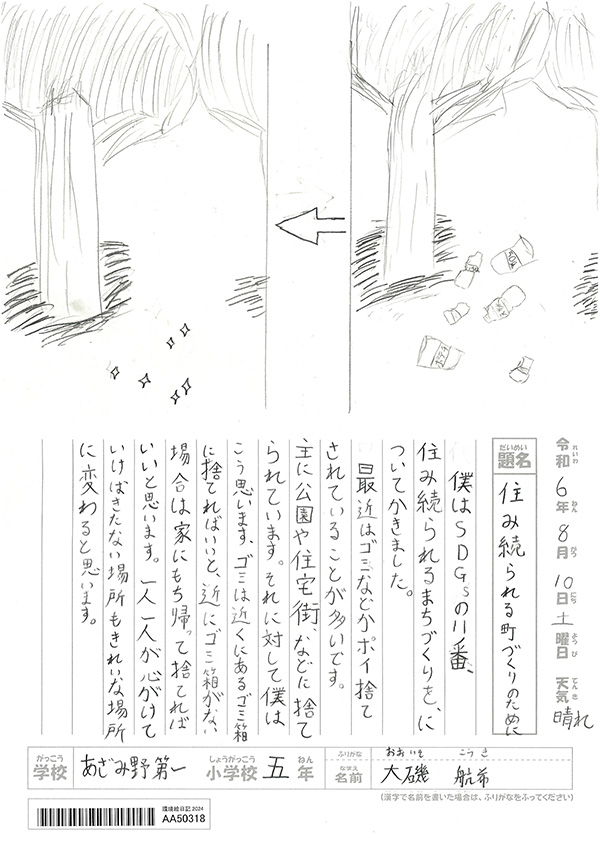 ポテチ
令和6年8月10日土曜日 天気晴れ
れいわ ねん がつ にち ようび てんき
だいめい
題名 住み続られる町づくりのために
僕はSDGsの11番、
住み続られるまちづくりを、に
ついてかきました。
最近はゴミなどがポイ捨て
されていることが多いです。
主に公園や住宅街、などに捨て
られています。それに対して僕は
こう思います、ゴミは近くにあるゴミ箱
に捨てればいいと、近にゴミ箱がない
場合は家にもち帰って捨てれば
いいと思います。一人一人が心がけて
いけばきたない場所もきれいな場所
に変わると思います。
がっこう しょうがっこう ねん
学校 あざみ野第一 小学校 五年
ふりがな おおいそ こうき
なまえ
名前 大磯 航希
(漢字で名前を書いた場合は、ふりがなをふってください)
環境絵日記2024
AA50318